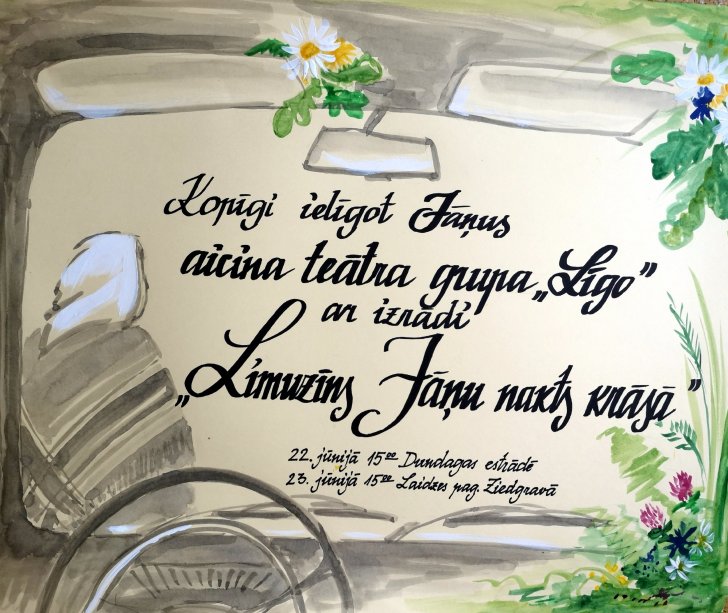 Kopīgi ielīgot Jāņus
aicina teātra grupa „Līgo”
ar izrādi
„Limuzīns Jāņu nakts krāsā”
22. jūnijā 15⁰⁰ Dundagas estrādē
23. jūnijā 15⁰⁰ Laidzes pag. Ziedgravā